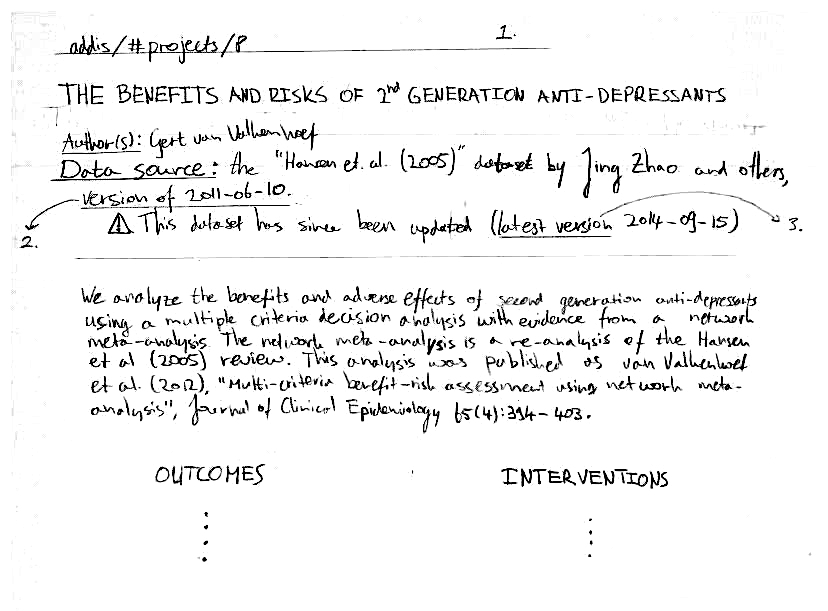 addis/#projects/8
1.
THE BENEFITS AND RISKS OF 2nd GENERATION ANTI-DEPRESSANTS
Author(s): Gert van Valkenhoef
Data source: the "Hansen et. al. (2005)" dataset by Jing Zhao and others,
version of 2011-06-10.
⚠ This dataset has since been updated (latest version 2014-09-15)
2.
3.
We analyze the benefits and adverse effects of second generation anti-depressants
using a multiple criteria decision analysis with evidence from a network
meta-analysis. The network meta-analysis is a re-analysis of the Hansen
et al (2005) review. This analysis was published as van Valkenhoef
et al. (2012), "Multi-criteria benefit-risk assessment using network meta-
analysis", Journal of Clinical Epidemiology 65(4):394-403.
OUTCOMES
INTERVENTIONS